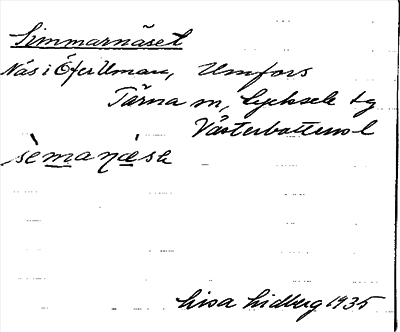 Simmarnäset
Näs i ÖferUman, Umfors
Tärna sn, Lycksele tg
Västerbottens l
sèmanæsə
Lisa Lidberg 1935